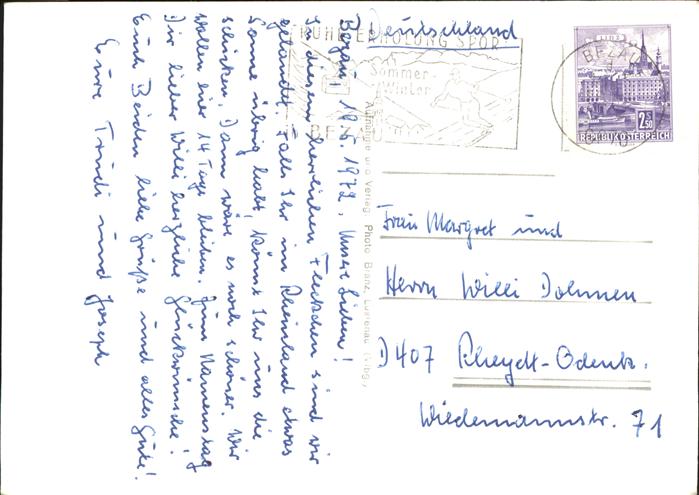 Deutschland
RUHE ERHOLUNG SPORT
Sommer-
Winter
BEZAU
LINZ
BEZAU
2.50
S
REPUBLIK ÖSTERREICH
Bezau, 1972, Unsere Lieben!
In diesem herrlichen Fleckchen sind wir
gelandet. Falls Ihr im Rheinland etwas
Sonne übrig habt, könnt Ihr uns die
schicken. Dann wäre es noch schöner. Wir
wollen hier 14 Tage bleiben. Zum Namenstag
Dir lieber Willi herzliche Glückwünsche!
Euch Beiden liebe Grüße und alles Gute!
Eure Trudi und Joseph
Aufnahme und Verlag: Photo Branz, Lustenau (Vlbg.)
Frau Margret und
Herrn Willi Dohmen
D 407 Rheydt-Odenk.
Wiedemannstr. 71